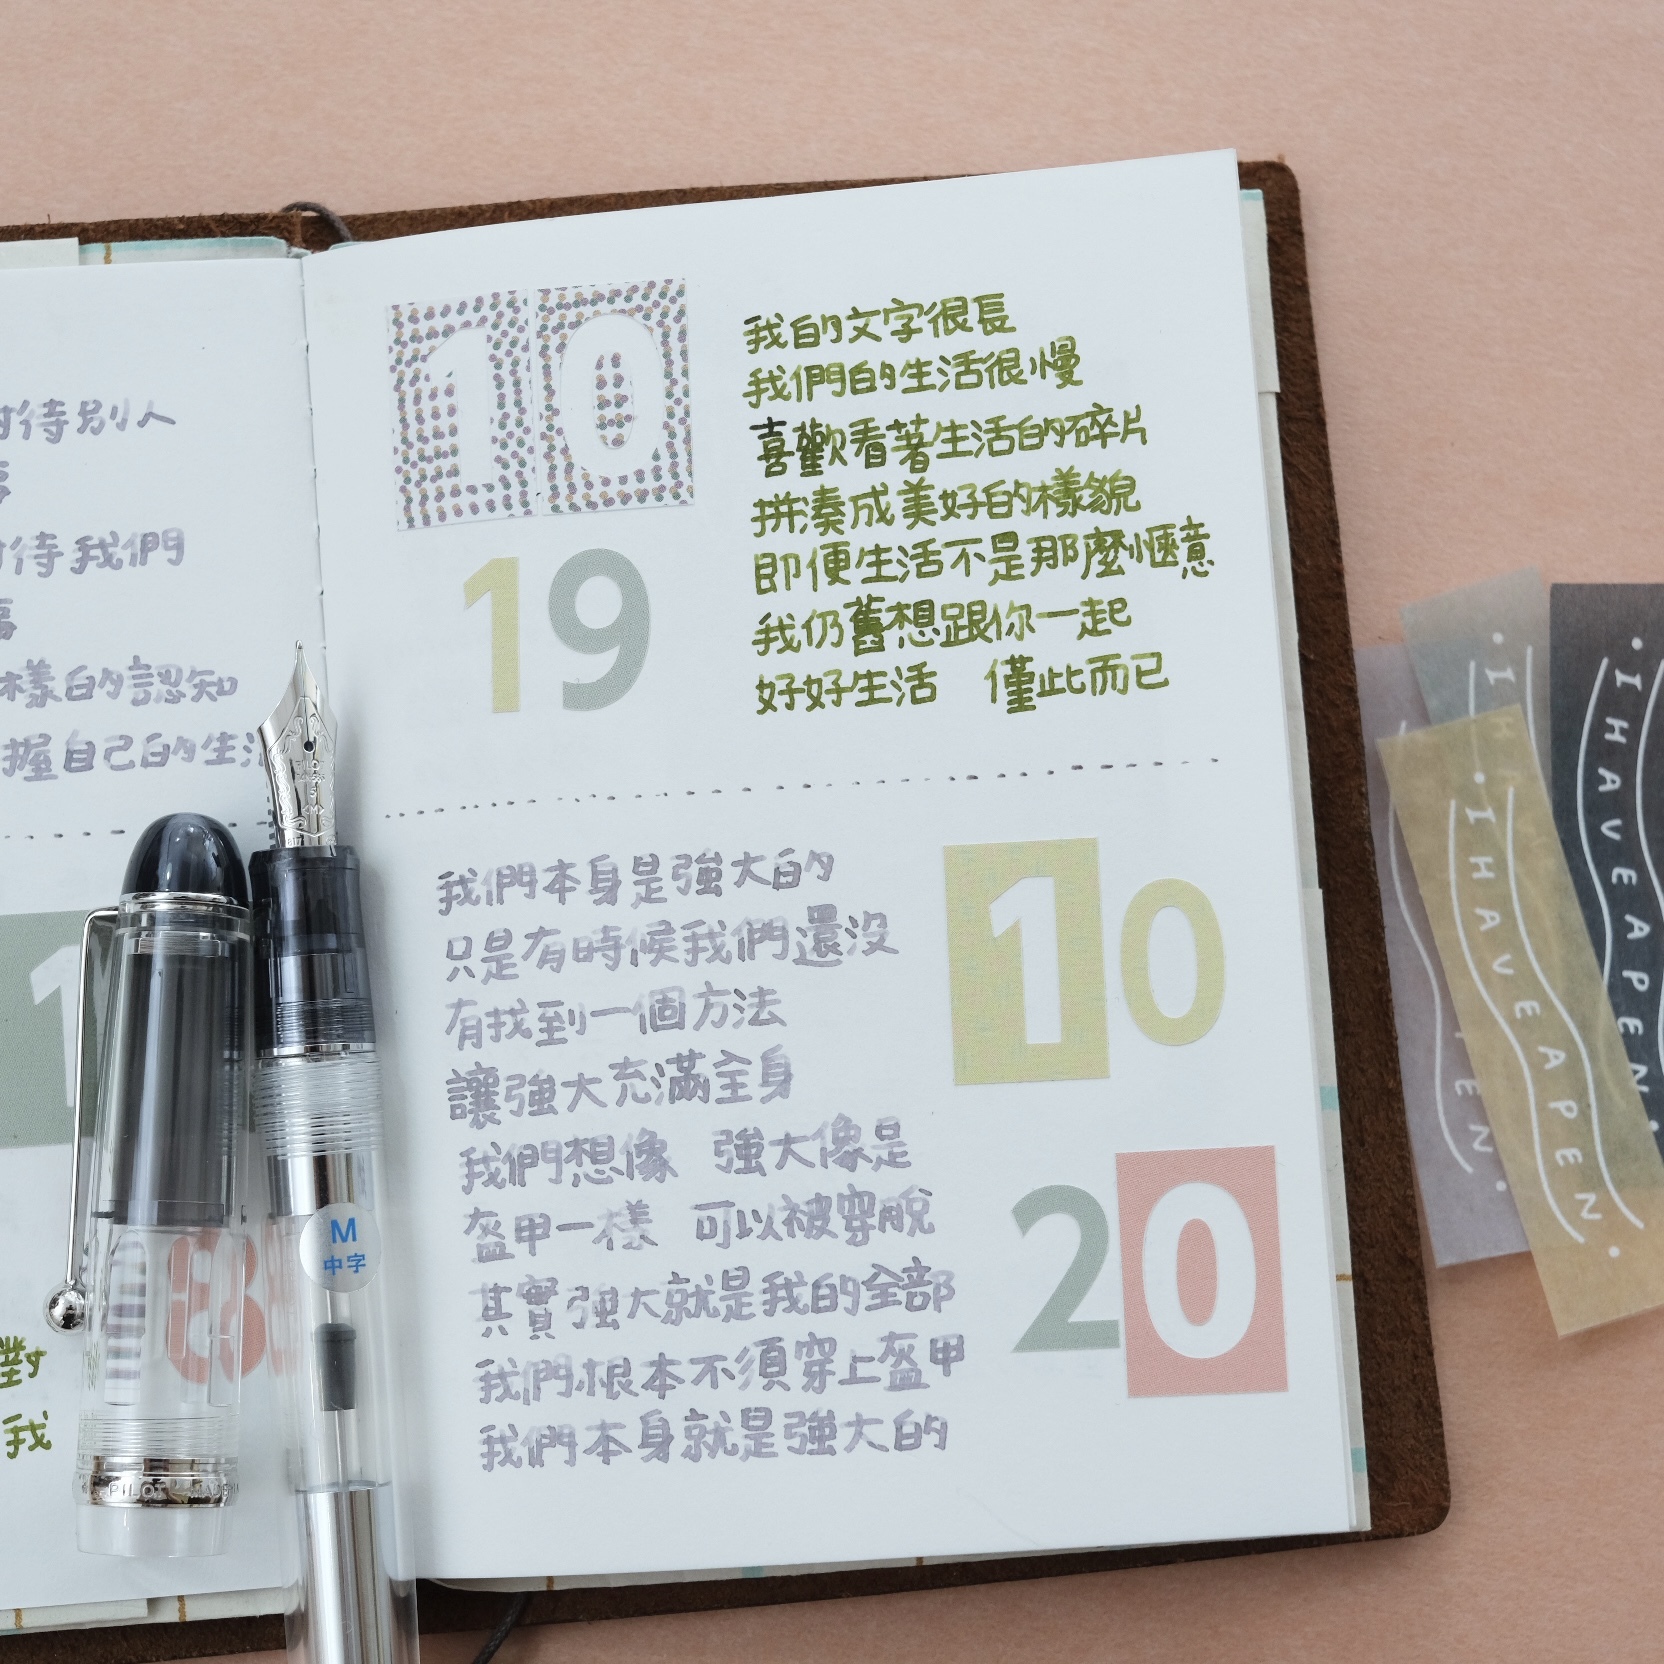 待別人
待我們
樣的認知
握自己的生活
1
8
對
我
10
19
我的文字很長
我們的生活很慢
喜歡看著生活的碎片
拼湊成美好的樣貌
即便生活不是那麼愜意
我仍舊想跟你一起
好好生活 僅此而已
我們本身是強大的
只是有時候我們還沒
有找到一個方法
讓強大充滿全身
我們想像 強大像是
盔甲一樣 可以被穿脫
其實強大就是我的全部
我們根本不須穿上盔甲
我們本身就是強大的
10
20
M
中字
PILOT MADE
I HAVE A PEN
I HAVE A PEN
I HAVE A PEN